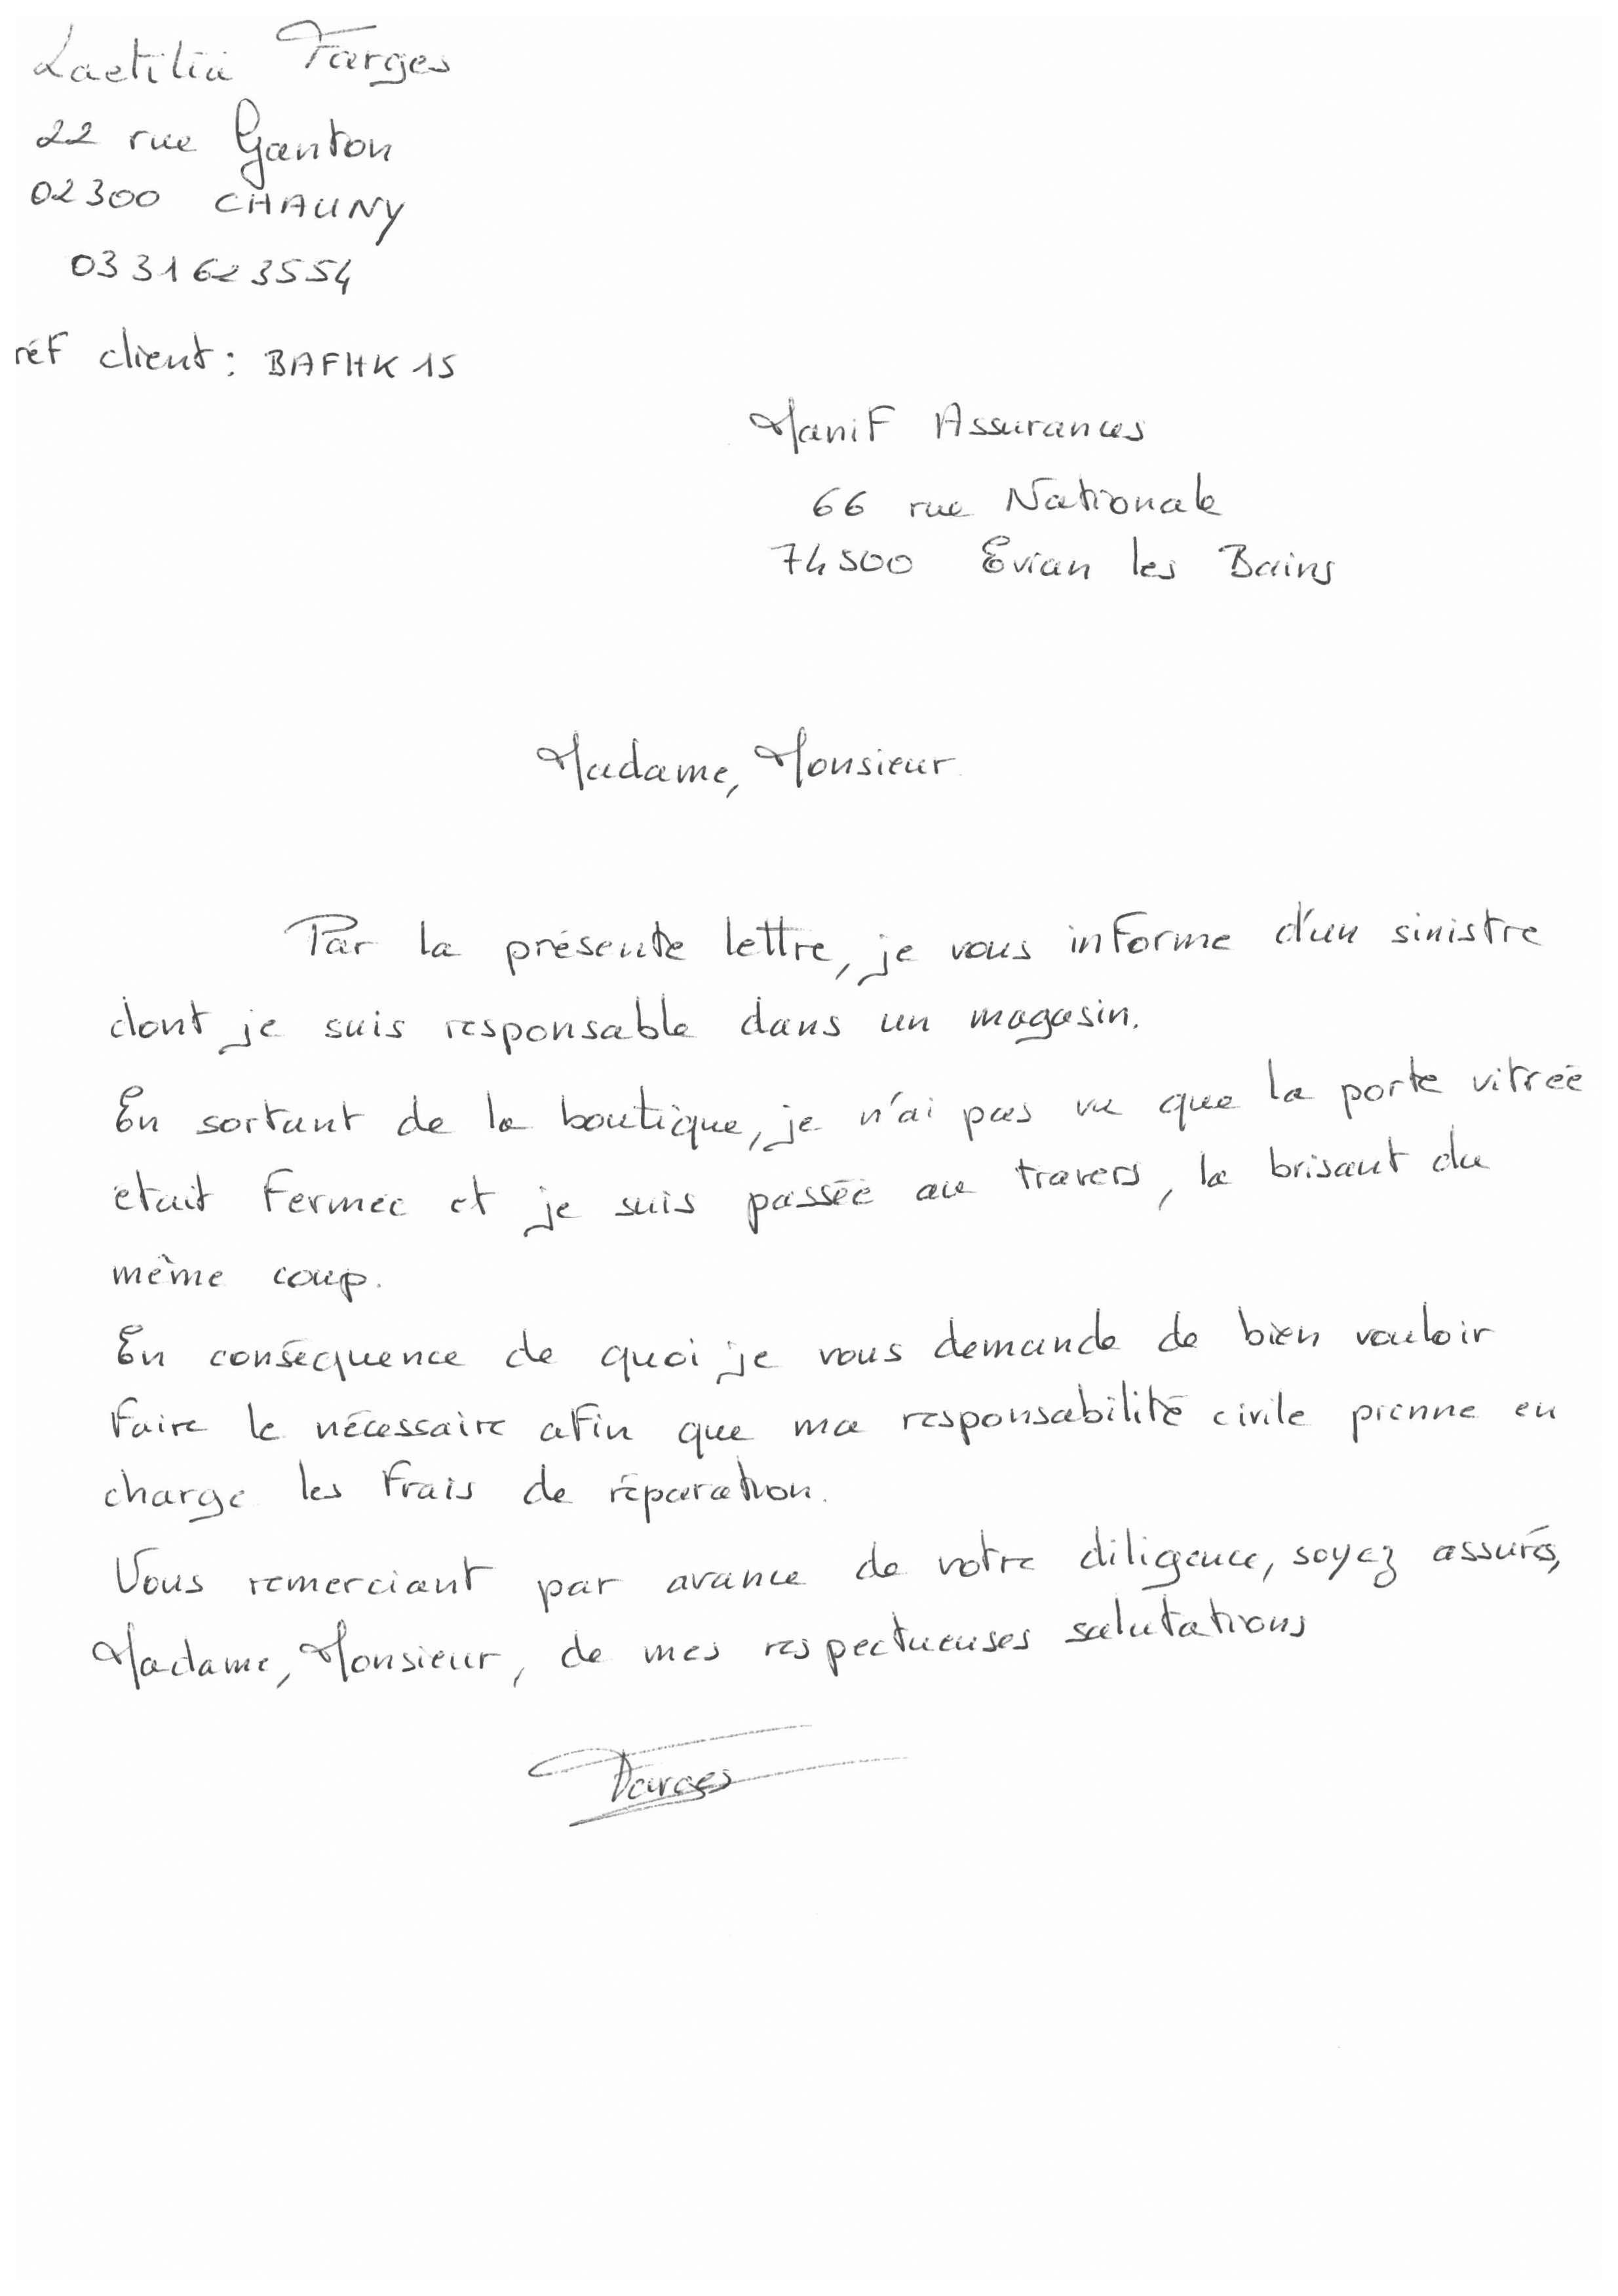 Laetitia Farges
22 rue Ganton
02300 CHAUNY
0331623554
réf client : BAFHK15
Manif Assurances
66 rue Nationale
74500 Evian les Bains
Madame, Monsieur
Par la présente lettre, je vous informe d'un sinistre
dont je suis responsable dans un magasin.
En sortant de la boutique, je n'ai pas vu que la porte vitrée
était fermée et je suis passée au travers, la brisant du
même coup.
En conséquence de quoi je vous demande de bien vouloir
faire le nécessaire afin que ma responsabilité civile prenne en
charge les frais de réparation.
Vous remerciant par avance de votre diligence, soyez assurés,
Madame, Monsieur, de mes respectueuses salutations
Farges